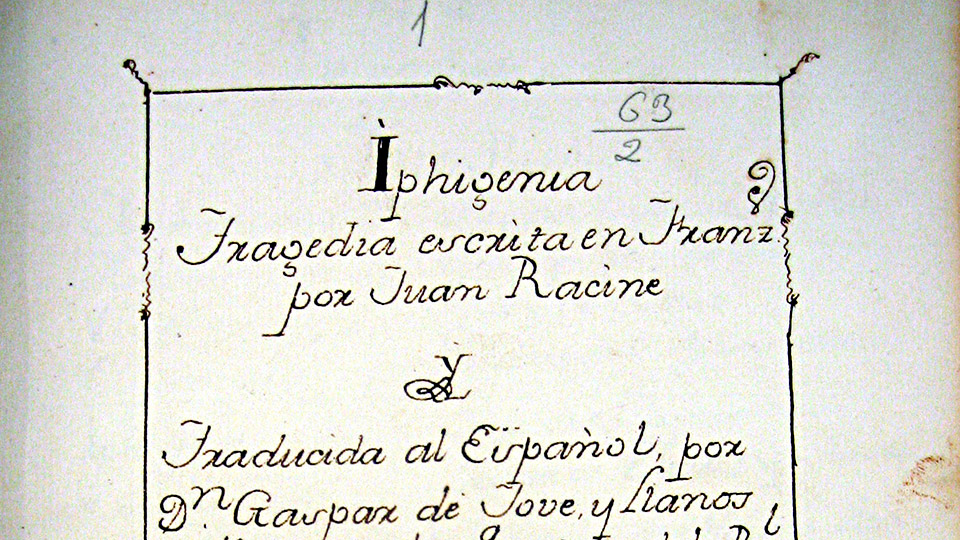 1
63
2
Iphigenia
Tragedia escrita en Franz.
por Juan Racine
Y
Traducida al Español, por
Dn. Gaspar de Jove, y Llanos